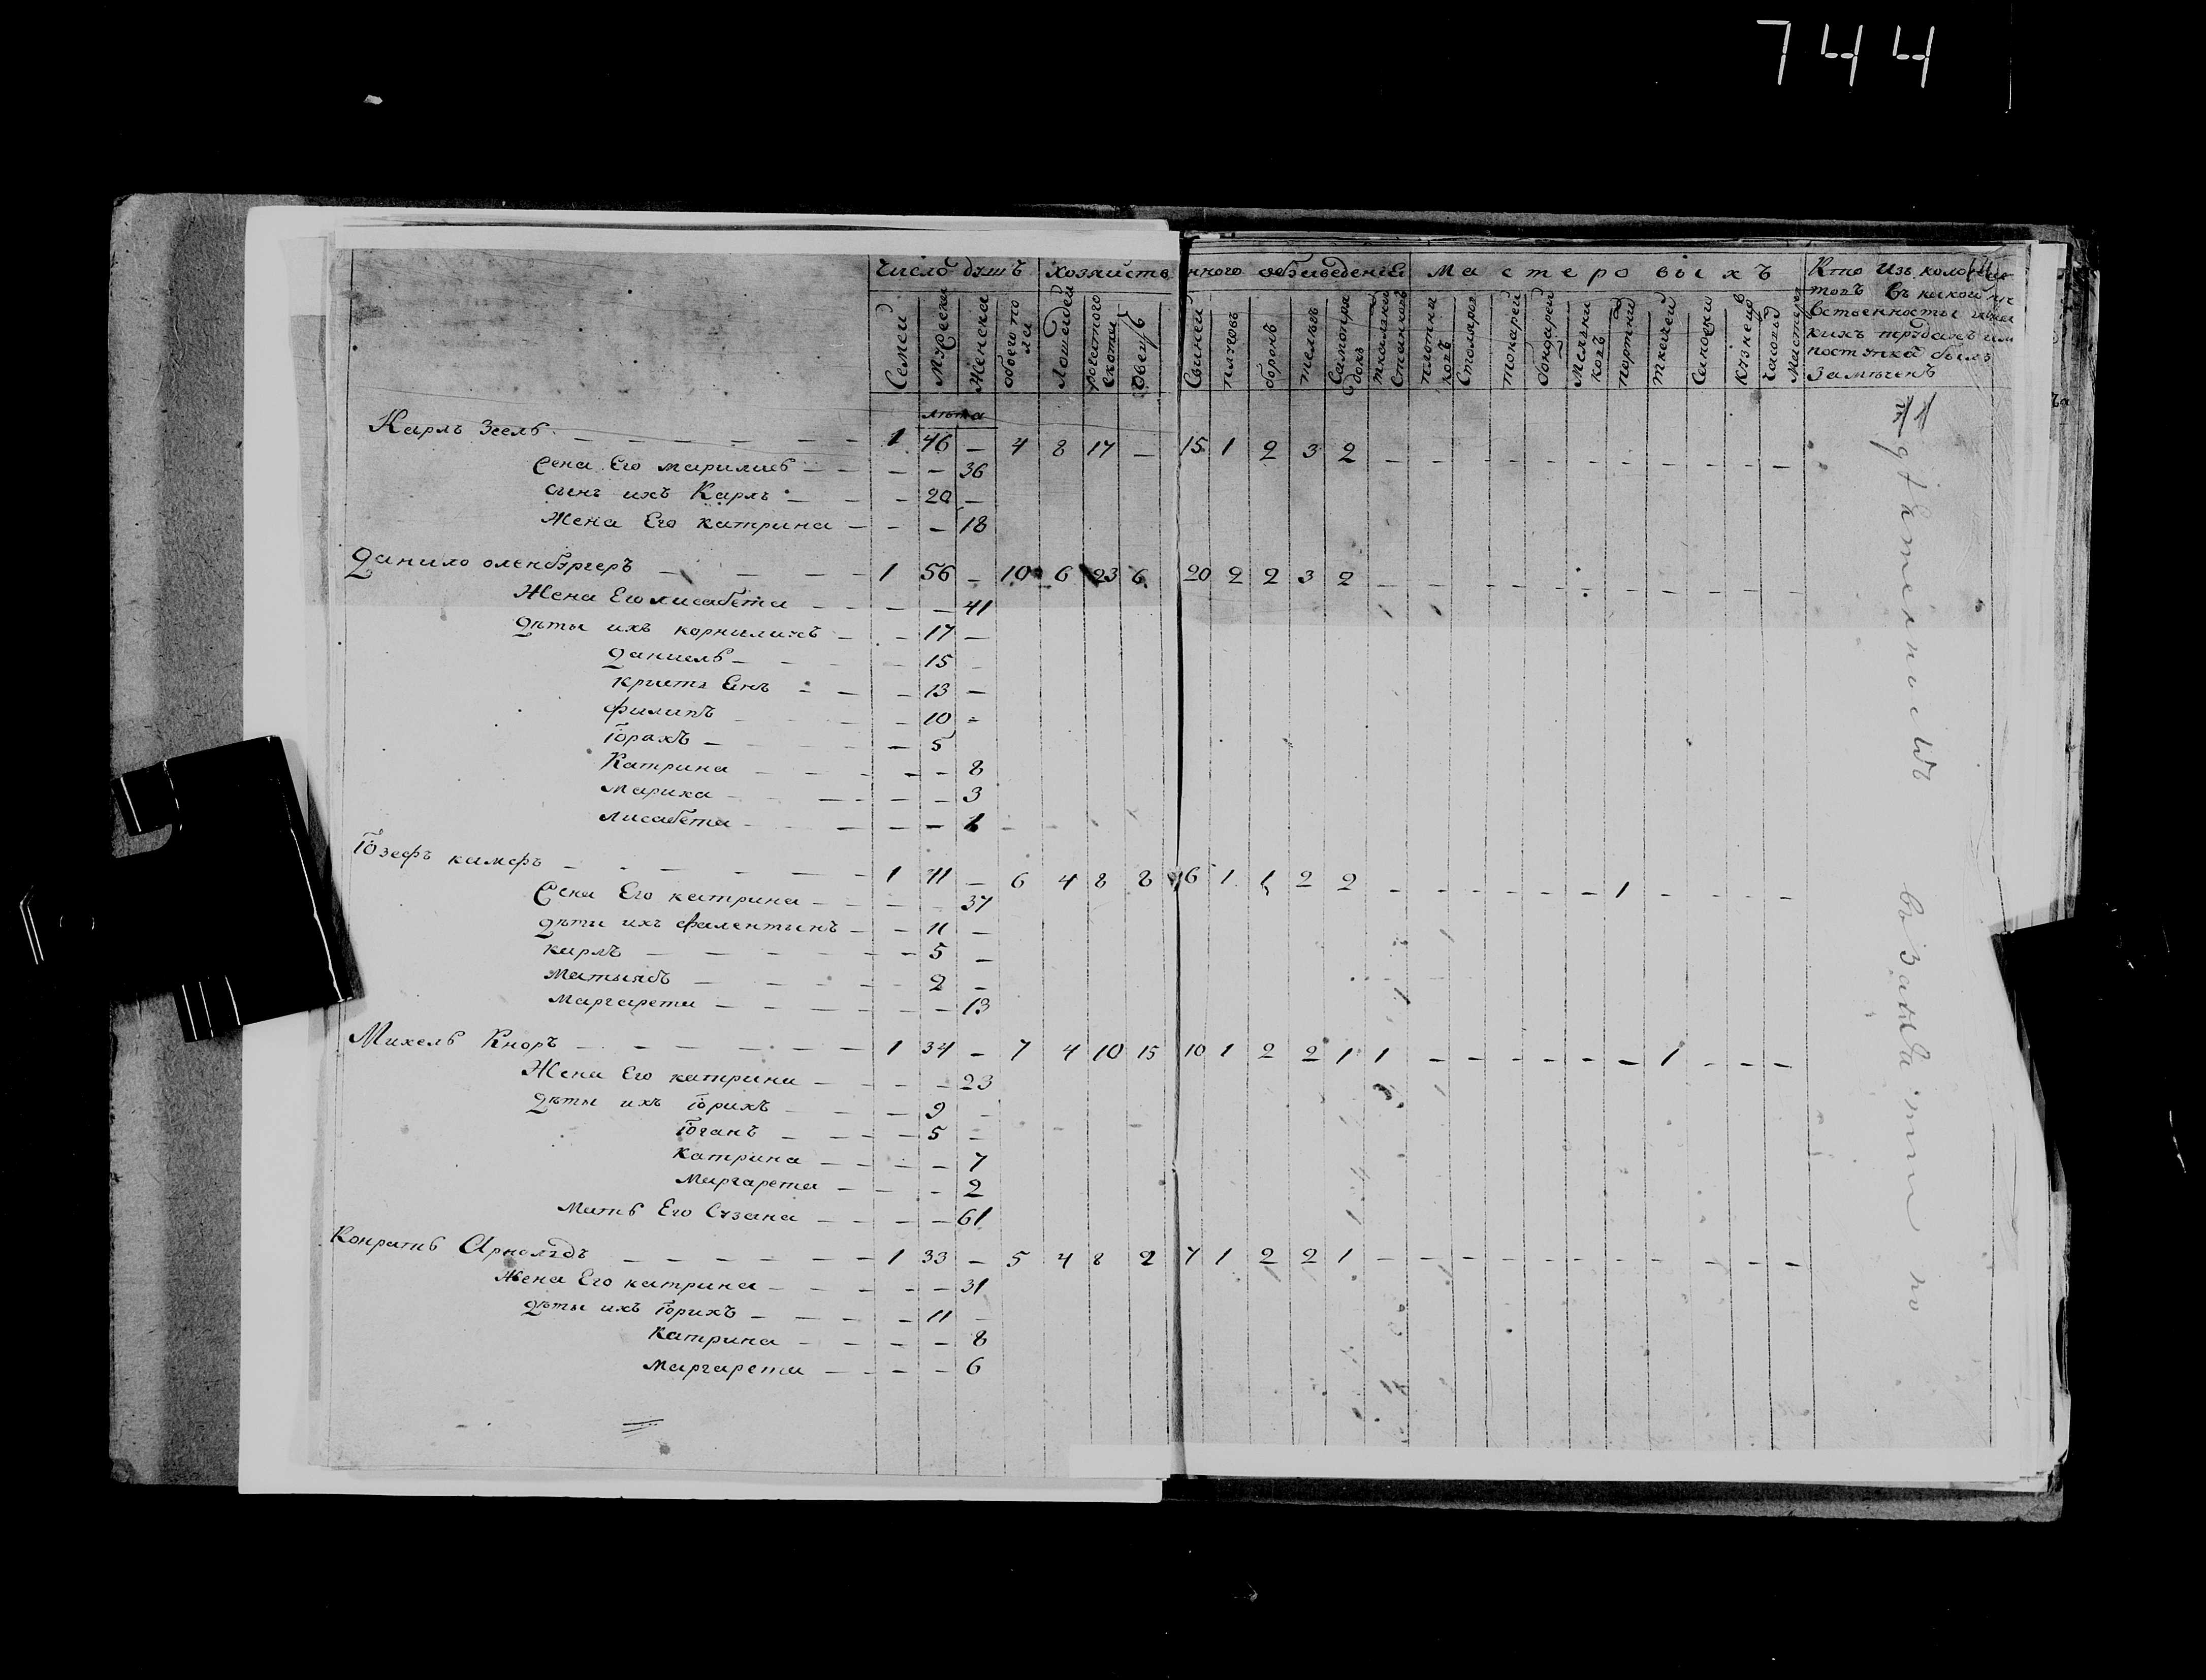 744
Число душъ хозяйстве нного обзаведения Мастеровыхъ Кто изъ колонис
товъ въ какой нр
вственности
кихъ трудахъ или
поступкахъ былъ
замѣченъ
Семей Мужеска Женска обоего пола Лошадей рогатого скота Овецъ Свиней плуговъ боронъ телегъ Самопрядокъ ткальныхъ Станковъ плотниковъ Столяров токарей бондарей Мельниковъ портныхъ ткачей Сапожни Кузнецов Часовых Мастеров
лѣта
Карлъ Зеель — 1 46 — 4 8 17 — 15 1 2 3 2 — — — — — — — — — — —
Жена Его марилисъ — — — 36
сынъ ихъ Карлъ — — 20 —
Жена Его катрина — — — 18
Данило оленбургеръ — 1 56 — 10 6 23 6 20 2 2 3 2 — — — — — — — — — — —
Жена Его лисабета — — — 41
Дѣты ихъ корнилиусъ — — 17 —
Даниелъ — — 15 —
кристъ Еянъ — — 13 —
Филипъ — — 10 —
Іорахъ — — 5
Катрина — — — 8
Мариха — — — 3
лисабета — — — 1
Іозефъ камфъ — 1 41 — 6 4 8 8 16 1 1 2 2 — — — — — — 1 — — — — —
Жена Его катрина — — — 37
дѣти ихъ фалентынъ — — 11 —
карлъ — — 5 —
Матыясъ — — 2 —
Маргарета — — — 13
Михель Кноръ — 1 34 — 7 4 10 15 10 1 2 2 1 1 — — — — — — 1 — — —
Жена Его катрина — — — 23
Дѣты ихъ Іорихъ — — 9 —
Іоганъ — — 5 —
Катрина — — — 7
Маргарета — — — 2
Мать Его Сузана — — — 61
Конратъ Арнольдъ — 1 33 — 5 4 8 2 7 1 2 2 1 — — — — — — — — — — —
Жена Его катрина — — — 31
дѣты ихъ Іорихъ — — 11 —
Катрина — — — 8
Маргарета — — — 6